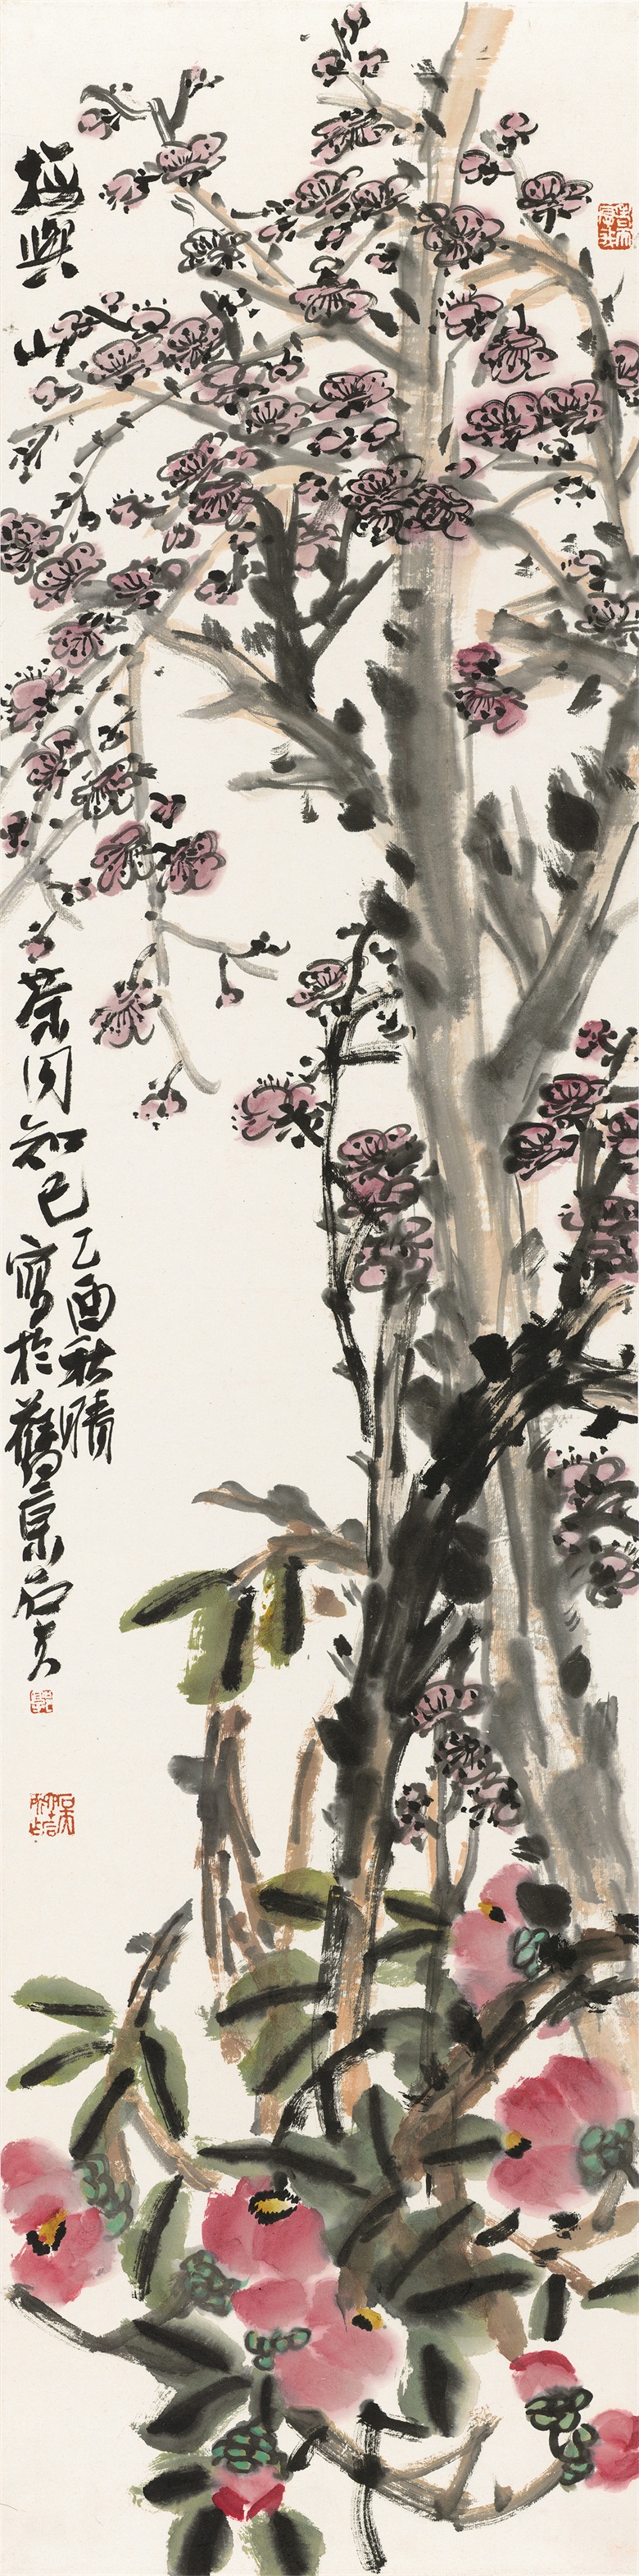 梅與山茶同知己
乙酉秋晴
寫於舊京石夫